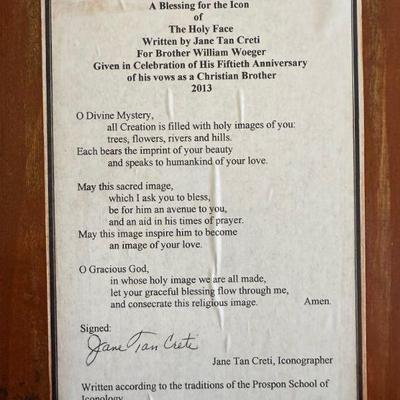 A Blessing for the Icon
of
The Holy Face
Written by Jane Tan Creti
For Brother William Woeger
Given in Celebration of His Fiftieth Anniversary
of his vows as a Christian Brother
2013
O Divine Mystery,
all Creation is filled with holy images of you:
trees, flowers, rivers and hills.
Each bears the imprint of your beauty
and speaks to humankind of your love.
May this sacred image,
which I ask you to bless,
be for him an avenue to you,
and an aid in his times of prayer.
May this image inspire him to become
an image of your love.
O Gracious God,
in whose holy image we are all made,
let your graceful blessing flow through me,
and consecrate this religious image. Amen.
Signed:
Jane Tan Creti
Jane Tan Creti, Iconographer
Written according to the traditions of the Prospon School of
Iconology